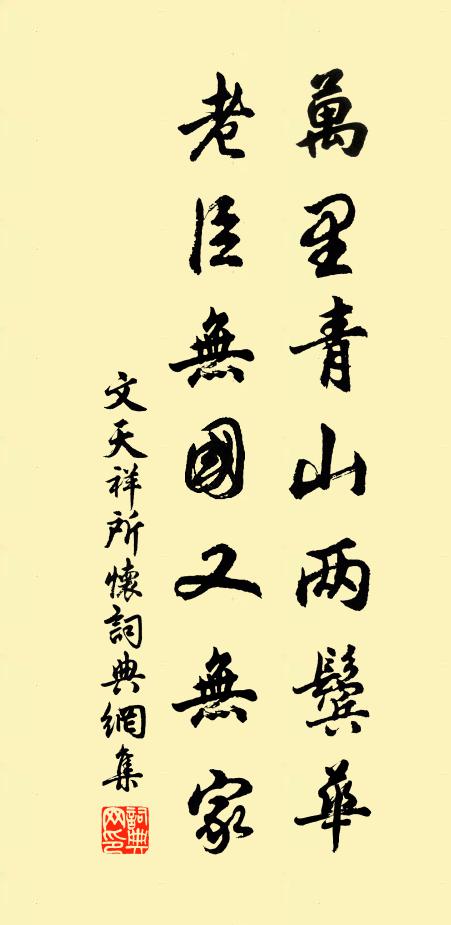 萬里青山兩鬢華
老臣無國又無家
文天祥所懷詞典網集
詞典
网印